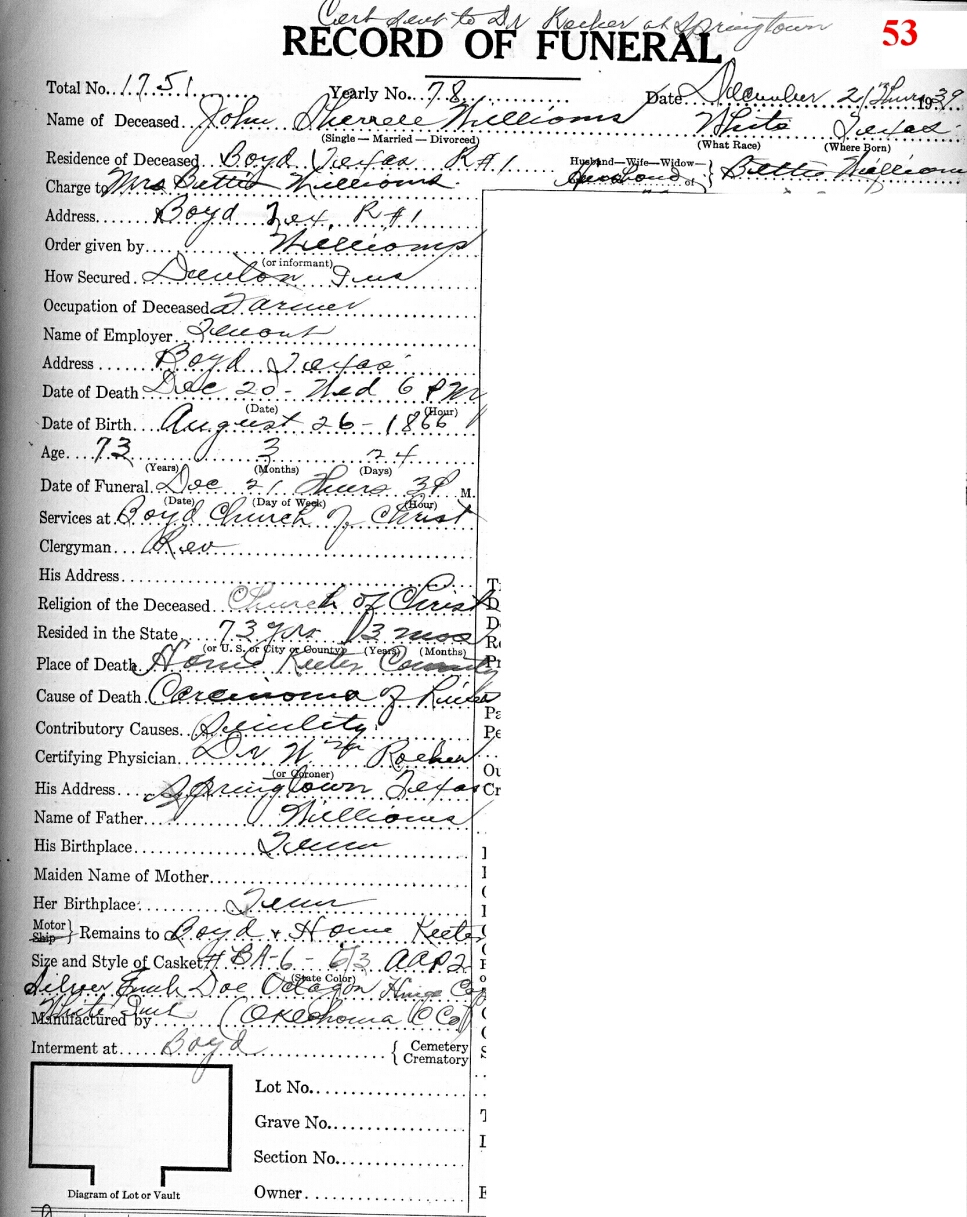 Cert sent to Dr Rocker at Springtown
RECORD OF FUNERAL 53
Total No. 1751 Yearly No. 78 Date December 21 Thurs 1939
Name of Deceased John Williams White Texas
(Single — Married — Divorced) (What Race) (Where Born)
Residence of Deceased Boyd Texas R#1 Husband—Wife—Widow— Husband of } Bettie Williams
Charge to Mrs Bettie Williams
Address Boyd Tex, R#1
Order given by Williams
(or informant)
How Secured Denton Ins
Occupation of Deceased Farmer
Name of Employer Tenant
Address Boyd Texas
Date of Death Dec 20 - Wed 6 PM
(Date) (Hour)
Date of Birth August 26 - 1866
Age 73 3 24
(Years) (Months) (Days)
Date of Funeral Dec 21 Thurs 3P M.
(Date) (Day of Week) (Hour)
Services at Boyd Church of Christ
Clergyman Rev
His Address
Religion of the Deceased Church of Christ
Resided in the State 73 yrs 3 mos
(or U. S. or City or County) (Years) (Months)
Place of Death Home Keeter
Cause of Death Carcinoma of
Contributory Causes Senility
Certifying Physician Dr Rocker
(or Coroner)
His Address Springtown Texas
Name of Father Williams
His Birthplace Tenn
Maiden Name of Mother
Her Birthplace Tenn
Motor Ship } Remains to Boyd + Home Keeter
Size and Style of Casket # BA-6 - 6/3
(State Color)
Silver Doe Octagon Hinge
White
Manufactured by (Oklahoma C Co)
Interment at Boyd { Cemetery Crematory
Lot No.
Grave No.
Section No.
Owner
Diagram of Lot or Vault